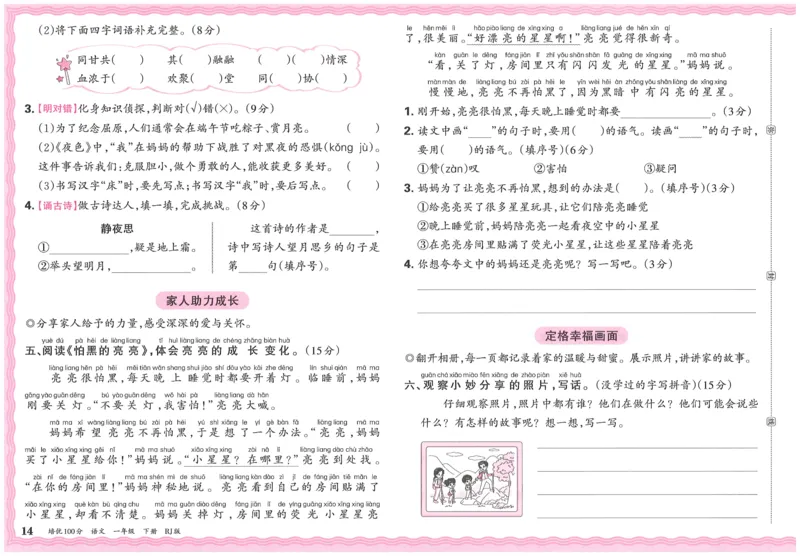 (2)将下面四字词语补充完整。(8分)
同甘共(　　) 其(　　)融融 (　　)(　　)情深
血浓于(　　) 欢聚(　　)堂 同(　　)协(　　)
3.【明对错】化身知识侦探,判断对(√)错(×)。(9分)
(1)为了纪念屈原,人们通常会在端午节吃粽子、赏月亮。 (　　)
(2)《夜色》中,“我”在妈妈的帮助下战胜了对黑夜的恐惧(kǒng jù)。
这件事告诉我们:克服胆小,做个勇敢的人,能收获更多美好。 (　　)
(3)书写汉字“床”时,要先写点;书写汉字“我”时,要后写点。 (　　)
4.【诵古诗】做古诗达人,填一填,完成挑战。(8分)
静夜思
①____________,疑是地上霜。
②举头望明月,______________。
这首诗的作者是________,
诗中写诗人望月思乡的句子是
第_____句(填序号)。
家人助力成长
◎分享家人给予的力量,感受深深的爱与关怀。
yuè dú pà hēi de liàng liang tǐ huì liàng liang de chéng zhǎng biàn huà
五、阅读《怕黑的亮亮》,体会亮亮的成长变化。(15分)
liàng liang hěn pà hēi měi tiān wǎn shang shuì jiào shí dōu yào kāi zhe dēng lín shuì qián mā ma
亮亮很怕黑,每天晚上睡觉时都要开着灯。临睡前,妈妈
gāng yào guān dēng bú yào guān dēng wǒ hài pà liàng liang dà hǎn
刚要关灯。“不要关灯,我害怕!”亮亮大喊。
mā ma xī wàng liàng liang bú zài pà hēi yú shì xiǎng le yí gè bàn fǎ liàng liang mā ma
妈妈希望亮亮不再怕黑,于是想了一个办法。“亮亮,妈妈
mǎi le xiǎo xīng xing gěi nǐ mā ma shuō xiǎo xīng xing zài nǎ lǐ liàng liang dào chù zhǎo
买了小星星给你!”妈妈说。“小星星?在哪里?”亮亮到处找。
zài nǐ de fáng jiān lǐ mā ma shén mì de shuō liàng liang kàn dào zì jǐ de fáng jiān tiē mǎn le
“在你的房间里!”妈妈神秘地说。亮亮看到自己的房间贴满了
xiǎo xīng xing què kàn bù qīng chu mā ma guān diào dēng fáng jiān lǐ de yíng guāng xiǎo xīng xing liàng
小星星,却看不清楚。妈妈关掉灯,房间里的荧光小星星亮
14 培优100分 语文 一年级 下册 RJ版
le hěn měi lì hǎo piào liang de xīng xing a liàng liang jué de hěn xīn qí
了,很美丽。“好漂亮的星星啊!”亮亮觉得很新奇。
kàn guān le dēng fáng jiān lǐ zhǐ yǒu shǎn shǎn fā guāng de xīng xing mā ma shuō
“看,关了灯,房间里只有闪闪发光的星星。”妈妈说。
màn màn de liàng liang bú zài pà hēi le yīn wèi hēi àn zhōng yǒu shǎn liàng de xīng xing
慢慢地,亮亮不再怕黑了,因为黑暗中有闪亮的星星。
1.刚开始,亮亮很怕黑,每天晚上睡觉时都要________________。(3分)
2.读文中画“____”的句子时,要用(　　)的语气。读画“____”的句子时,
要用(　　)的语气。(填序号)(6分)
①赞(zàn)叹 ②害怕 ③疑问
3.妈妈为了让亮亮不再怕黑,想到的办法是(　　)。(填序号)(3分)
①给亮亮买了很多星星玩具,让它们陪亮亮睡觉
②晚上睡觉前,妈妈陪亮亮一起看夜空中的小星星
③在亮亮房间里贴满了荧光小星星,让这些星星陪着亮亮
4.你想夸夸文中的妈妈还是亮亮呢?写一写吧。(3分)
定格幸福画面
◎翻开相册,每一页都记录着家的温暖与甜蜜。展示照片,讲讲家的故事。
guān chá xiǎo miào fēn xiǎng de zhào piàn xiě huà
六、观察小妙分享的照片,写话。(没学过的字写拼音)(15分)
仔细观察照片,照片中都有谁?他们在做什么?他们可能会说些
什么?有怎样的故事呢?想一想,写一写。